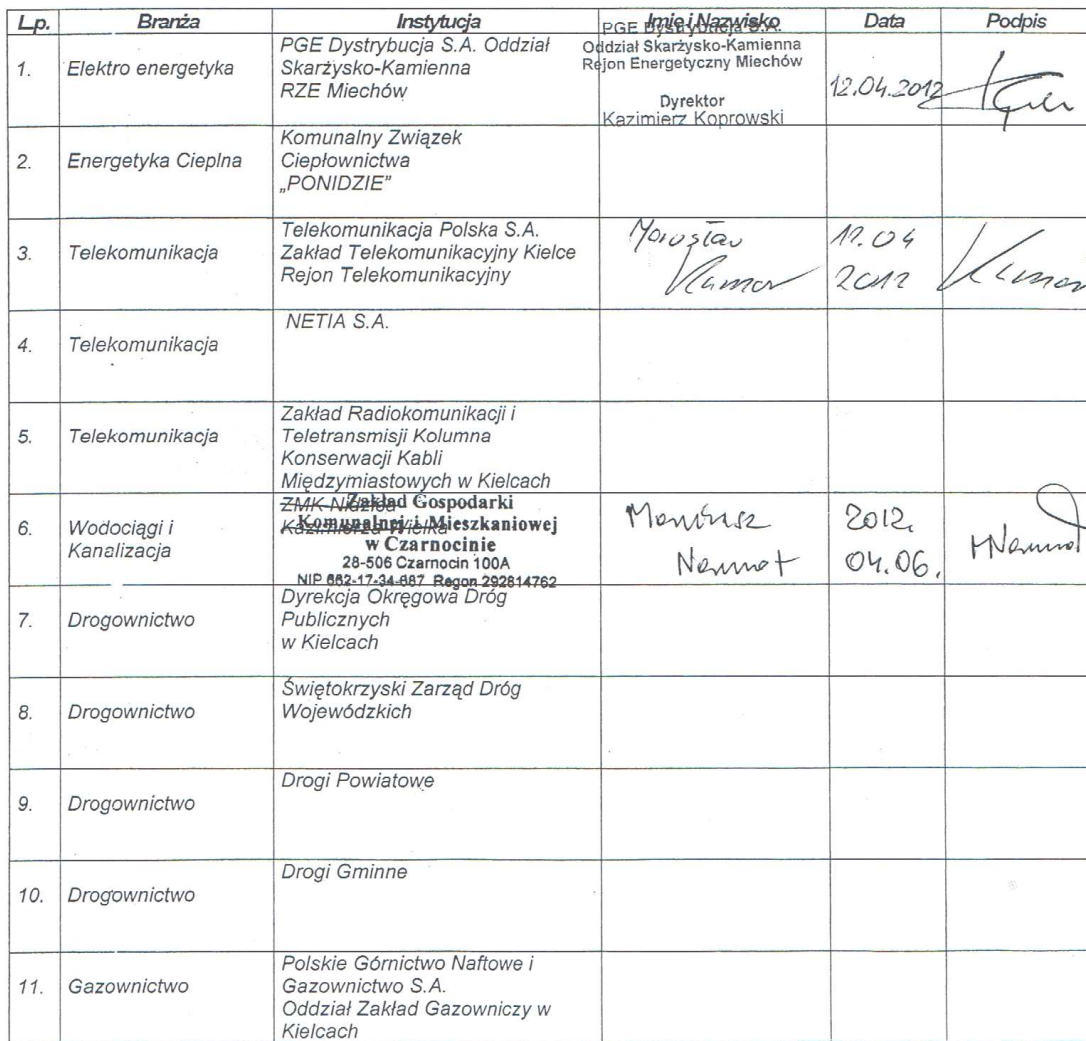 L.p. Branża Instytucja Imię i Nazwisko Data Podpis
1. Elektro energetyka
PGE Dystrybucja S.A. Oddział
Skarżysko-Kamienna
RZE Miechów
PGE Dystrybucja S.A.
Oddział Skarżysko-Kamienna
Rejon Energetyczny Miechów
Dyrektor
Kazimierz Koprowski
12.04.2012
2. Energetyka Cieplna
Komunalny Związek
Ciepłownictwa
„PONIDZIE”
3. Telekomunikacja
Telekomunikacja Polska S.A.
Zakład Telekomunikacyjny Kielce
Rejon Telekomunikacyjny
12.04
2012
4. Telekomunikacja
NETIA S.A.
5. Telekomunikacja
Zakład Radiokomunikacji i
Teletransmisji Kolumna
Konserwacji Kabli
Międzymiastowych w Kielcach
6. Wodociągi i
Kanalizacja
ZMK Nidzica
Kazimierza Wielka
Zakład Gospodarki
Komunalnej i Mieszkaniowej
w Czarnocinie
28-506 Czarnocin 100A
NIP 662-17-34-687 Regon 292814762
2012.
04.06.
7. Drogownictwo
Dyrekcja Okręgowa Dróg
Publicznych
w Kielcach
8. Drogownictwo
Świętokrzyski Zarząd Dróg
Wojewódzkich
9. Drogownictwo
Drogi Powiatowe
10. Drogownictwo
Drogi Gminne
11. Gazownictwo
Polskie Górnictwo Naftowe i
Gazownictwo S.A.
Oddział Zakład Gazowniczy w
Kielcach